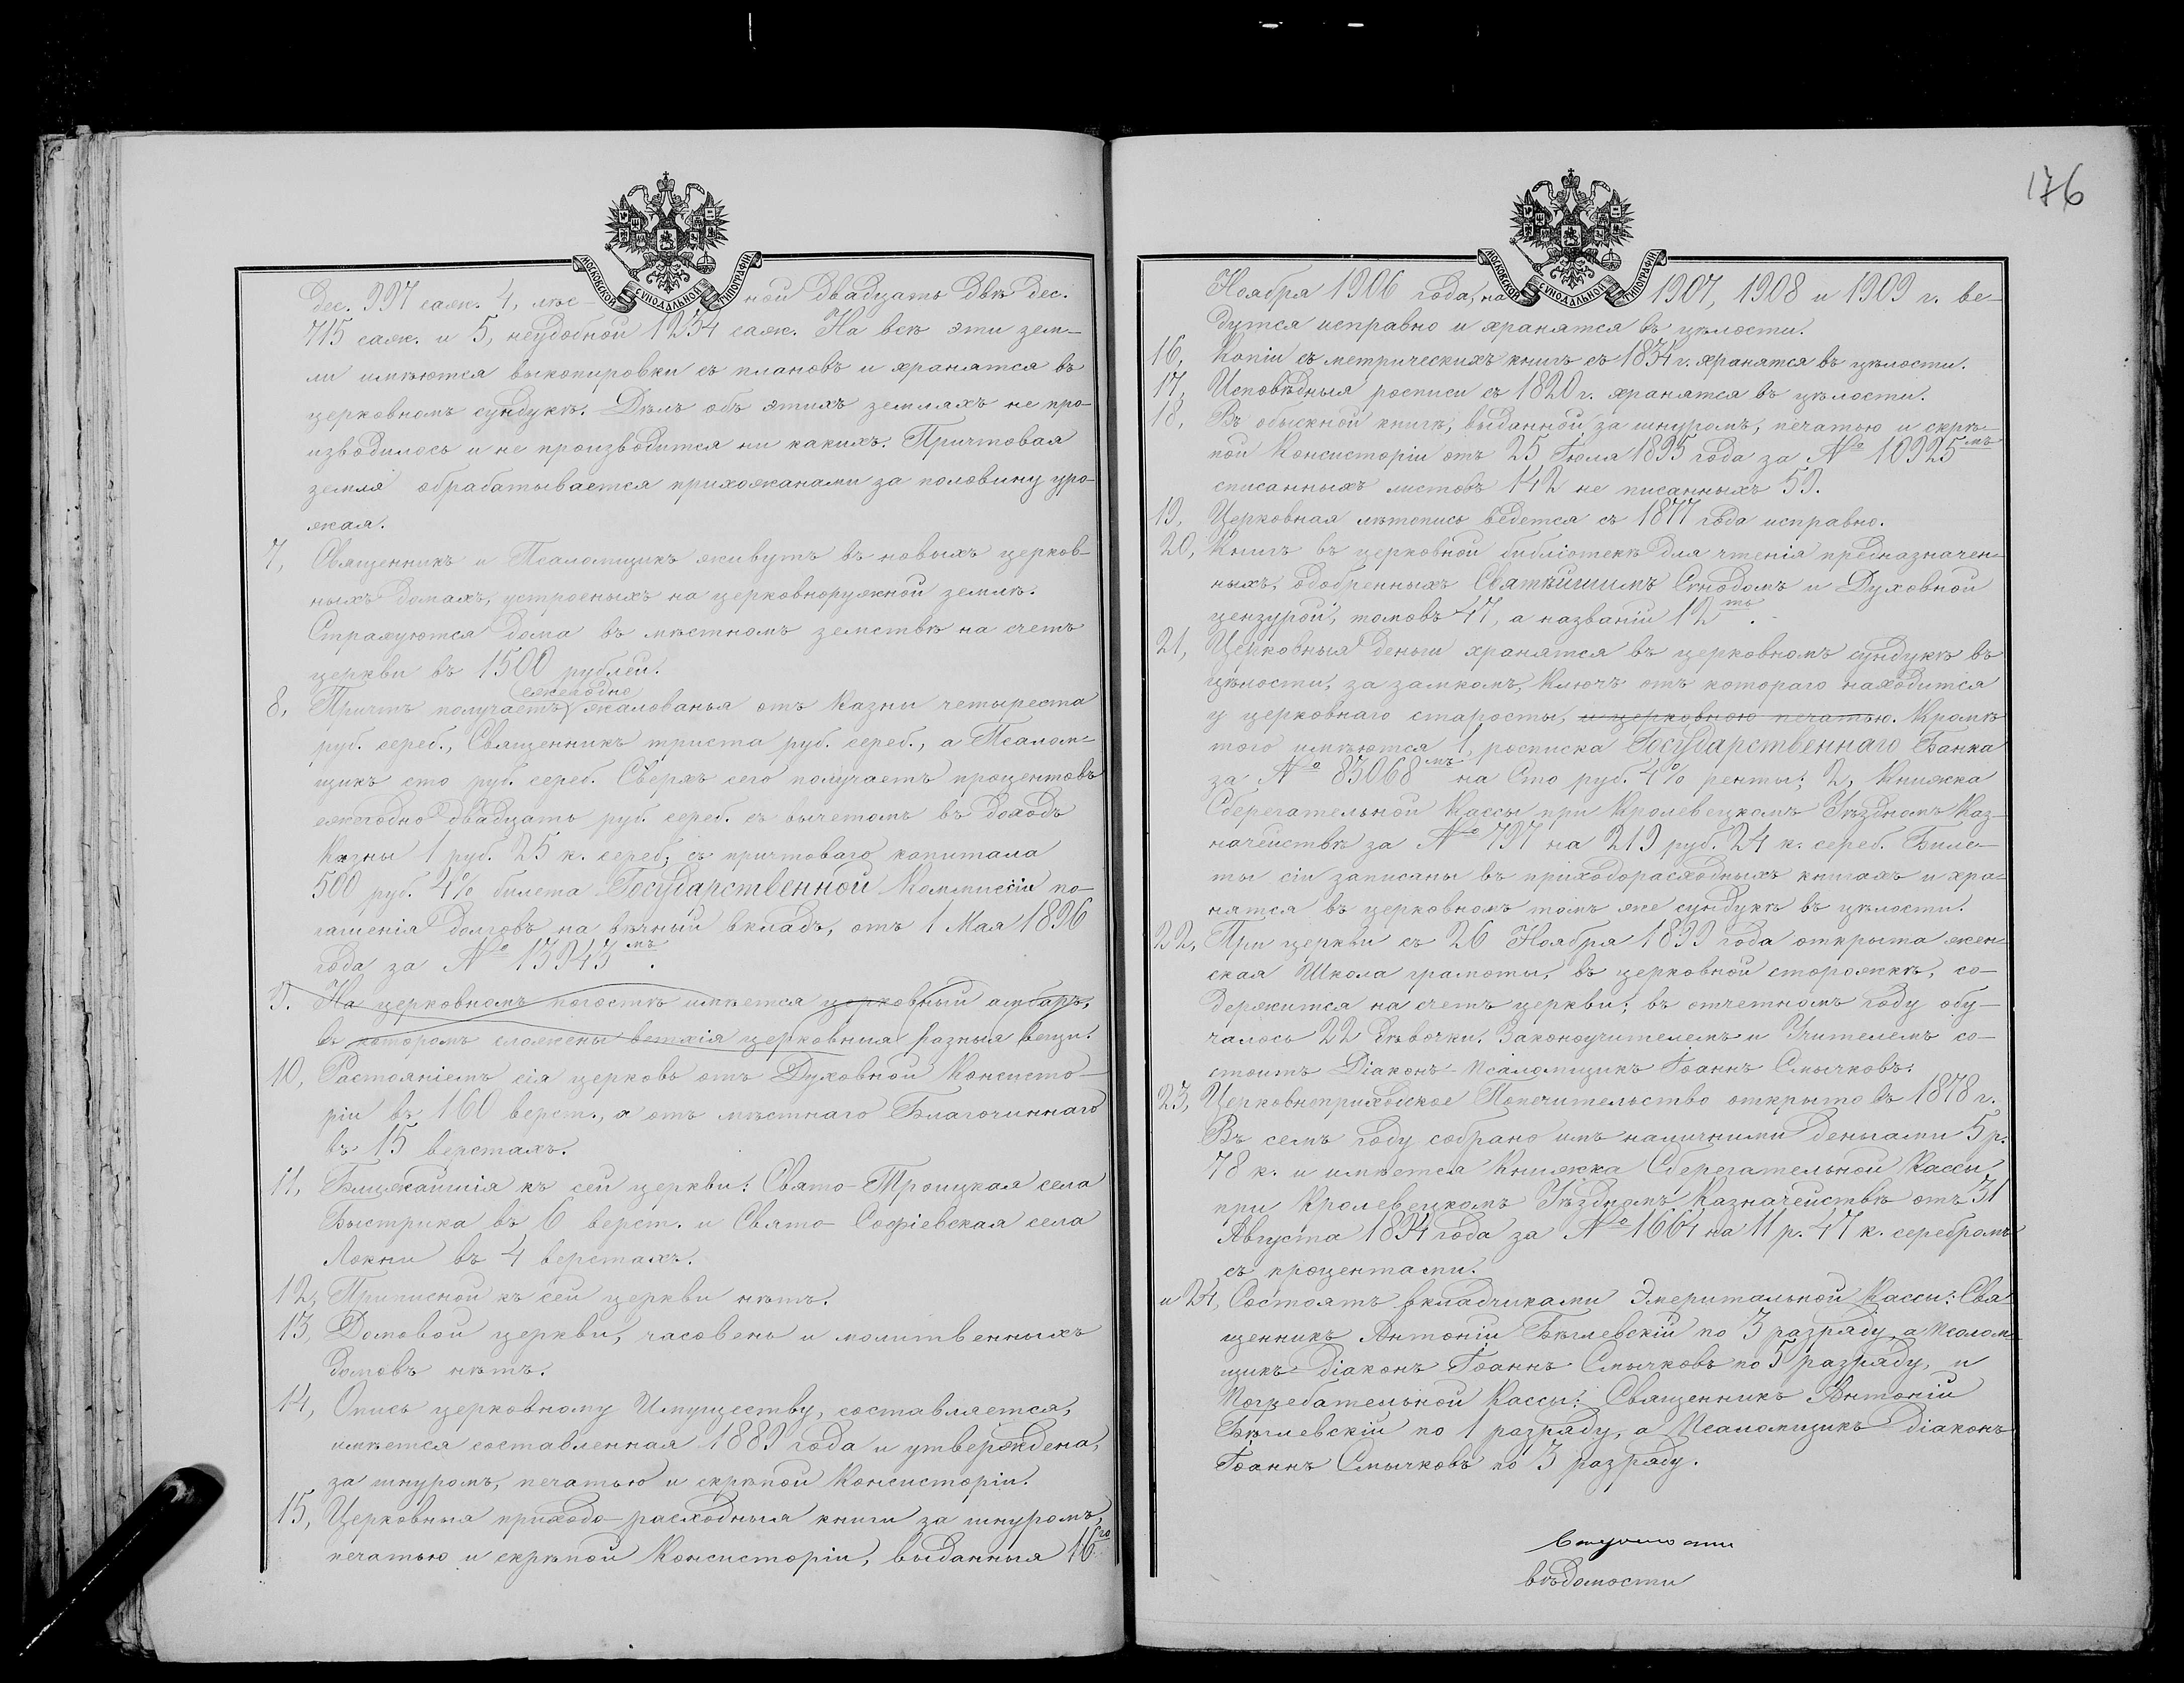 176
МОСКОВСКОЙ СѴНОДАЛЬНОЙ ТИПОГРАФІИ
дес. 997 саж. 4, лѣс-ной двадцать двѣ дес.
715 саж. и 5, неудобной 1254 саж. На всѣ эти зем-
ли имѣются выкопировки съ плановъ и хранятся въ
церковномъ сундукѣ. Дѣлъ объ этихъ земляхъ не про-
изводилось и не производится ни какихъ. Причтовая
земля обрабатывается прихожанами за половину уро-
жая.
7, Священникъ и Псаломщикъ живутъ въ новыхъ церков-
ныхъ домахъ, устроеныхъ на церковноружной землѣ.
Страхуются дома въ мѣстномъ земствѣ на счетъ
церкви въ 1500 рублей.
8, Причтъ получаетъ ежегодно жалованья отъ казны четыреста
руб. сереб., Священникъ триста руб. сереб., а Псалом-
щикъ сто руб. сереб. Сверхъ сего получаетъ процентовъ
ежегодно двадцать руб. сереб. съ вычетомъ въ доходъ
казны 1 руб. 25 к. сереб, съ причтоваго капитала
500 руб. 4% билета Государственной Коммиссіи по-
гашенія долговъ на вѣчный вкладъ, отъ 1 Мая 1896
года за № 13943мъ.
9. На церковномъ погостѣ имѣется церковный амбаръ,
въ которомъ сложены ветхія церковныя разныя вещи.
10, Растояніемъ сія церковь отъ Духовной Консисто-
ріи въ 160 верст., а отъ мѣстнаго Благочиннаго
въ 15 верстахъ.
11, Ближайшія къ сей церкви: Свято-Троицкая села
Быстрика въ 6 верст. и Свято-Софіевская села
Локни въ 4 верстахъ.
12, Приписной къ сей церкви нѣтъ.
13, Домовой церкви, часовень и молитвенныхъ
домовъ нѣтъ.
14, Опись церковному Имуществу, составляется,
имѣется составленная 1889 года и утверждена,
за шнуромъ, печатью и скрѣпой Консисторіи.
15, Церковныя приходо-расходныя книги за шнуромъ,
печатью и скрѣпой Консисторіи, выданныя 16го
МОСКОВСКОЙ СѴНОДАЛЬНОЙ ТИПОГРАФІИ
Ноября 1906 года, на 1907, 1908 и 1909 г. ве-
дутся исправно и хранятся въ цѣлости.
16, Копіи съ метрическихъ книгъ съ 1834 г. хранятся въ цѣлости.
17, Исповѣдныя росписи съ 1820 г. хранятся въ цѣлости.
18, Въ обыскной книгѣ, выданной за шнуромъ, печатью и скрѣ-
пой Консисторіи отъ 25 Іюля 1895 года за № 10925мъ
списанныхъ листовъ 142 не писанныхъ 59.
19, Церковная лѣтопись ведется съ 1877 года исправно.
20, Книгъ въ церковной библіотекѣ для чтенія предназначен-
ныхъ, одобренныхъ Святѣйшимъ Сѵнодомъ и Духовной
цензурой, томовъ 47, а названій 12ть.
21, Церковныя деньги хранятся въ церковномъ сундукѣ въ
цѣлости, за замкомъ, ключъ отъ котораго находится
у церковнаго старосты, и церковною печатью. Кромѣ
того имѣются 1, росписка Государственнаго Банка
за № 83068мъ на Сто руб. 4% ренты; 2, Книжка
Сберегательной Кассы при Кролевецкомъ Уѣздномъ Каз-
начействѣ за № 797 на 219 руб. 24 к. сереб. Биле-
ты сіи записаны въ приходорасходныхъ книгахъ и хра-
нятся въ церковномъ томъ же сундукѣ въ цѣлости.
22, При церкви съ 26 Ноября 1899 года открыта жен-
ская Школа грамоты, въ церковной сторожкѣ, со-
держится на счетъ церкви; въ отчетномъ году обу-
чалось 22 дѣвочки. Законоучителемъ и Учителемъ со-
стоитъ Діаконъ-Псаломщикъ Іоаннъ Смычковъ.
23, Церковноприходское Попечительство открыто въ 1878 г.
Въ семъ году собрано имъ наличными деньгами 5 р.
78 к. и имѣется Книжка Сберегательной Кассы
при Кролевецкомъ Уѣздномъ Казначействѣ отъ 31
Августа 1894 года за № 1664 на 11 р. 47 к. серебромъ
съ процентами.
и 24, Состоятъ вкладчиками Эмеритальной Кассы: Свя-
щенникъ Антоній Бѣлевскій по 3 разряду, а Псалом-
щикъ-діаконъ Іоаннъ Смычковъ по 5 разряду, и
Погребательной Кассы: Священникъ Антоній
Бѣлевскій по 1 разряду, а Псаломщикъ-діаконъ
Іоаннъ Смычковъ по 3 разряду.
вѣдомости